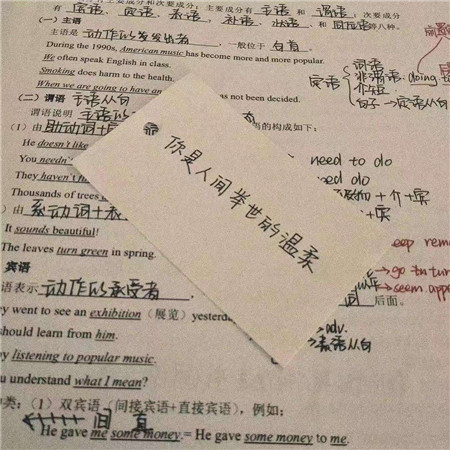 有主要成分和次要成分；主要成分有 主语 和 谓语；次要成分
有 宾语、定语、表语、补语、状语 和 同位语等八种。
(一) 主语
主语是 动作的发出者，一般位于 句首。
During the 1990s, American music has become more and more popular.
We often speak English in class.
Smoking does harm to the health.
When we are going to have an was not been decided.
主语从句
定语
词语
非谓语. doing to
介短
句子→定语从句
(二) 谓语
谓语说明 主语的
的构成如下：
(1) 由 助动词+
He doesn't like
You needn't
They haven't
Thousands of trees
need to do
need do
+介+宾
+宾
) 由 系动词+表
It sounds beautiful!
The leaves turn green in spring.
你是人间举世的温柔
go tu
seem. appe
宾语
语表示 动作的承受者，
词 后面。
y went to see an exhibition (展览) yesterd
should learn from him.
y listening to popular music.
u understand what I mean?
→adv.
→表语从句
种类：(1) 双宾语 (间接宾语+直接宾语)，例如：
间 直
He gave me some money.= He gave some money to me.